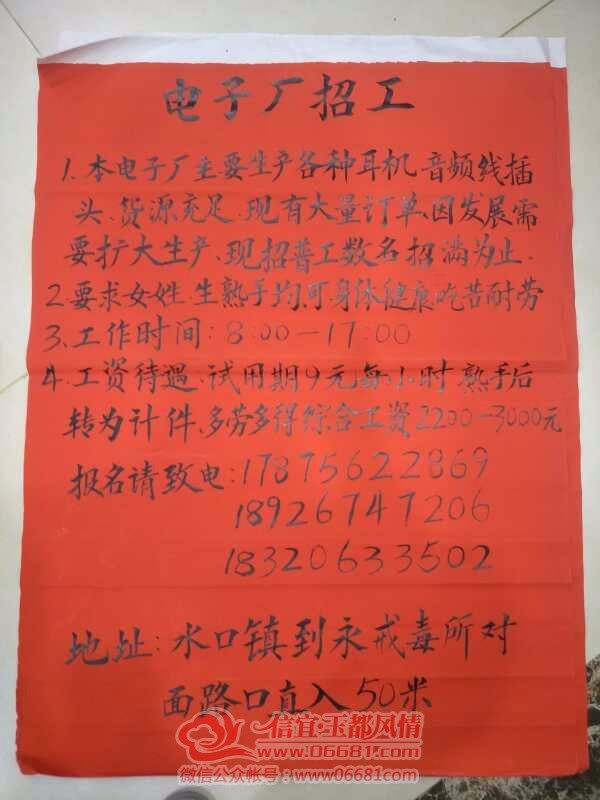 电子厂招工
1.本电子厂主要生产各种耳机、音频线插
头、货源充足、现有大量订单、因发展需
要扩大生产、现招普工数名招满为止.
2.要求女姓、生熟手均可身体健康吃苦耐劳
3.工作时间:8:00—17:00
4.工资待遇、试用期9元每小时熟手后
转为计件、多劳多得综合工资2200—3000元
报名请致电:17875622869
18926747206
18320633502
地址:水口镇到永戒毒所对
面路口直入50米
信宜·玉都风情
www.06681.com
微信公众帐号:www06681com